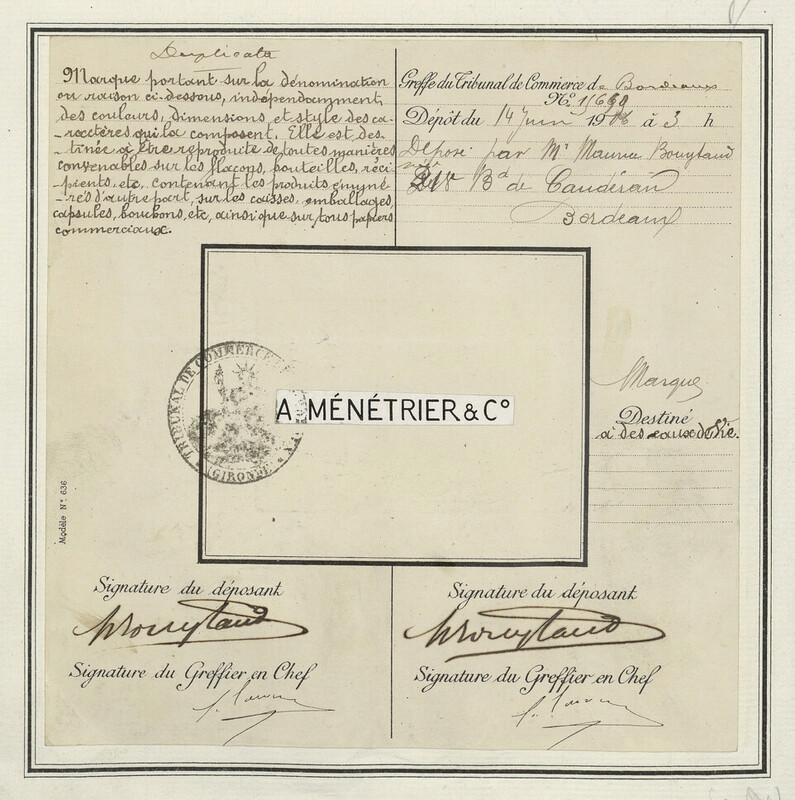 Duplicata
Marque portant sur la dénomination
ou raison ci-dessous, indépendamment
des couleurs, dimensions, et style des ca-
-ractères qui la composent. Elle est, des-
-tinée à être reproduite de toutes manières
convenables sur les flacons, bouteilles, réci-
-pients, etc, contenant les produits enumé-
-rés d'autre part, sur les caisses, emballages,
capsules, bouchons, etc, ainsi que sur tous papiers
commerciaux.
Greffe du Tribunal de Commerce de Bordeaux
N°
Dépôt du 14 Juin 1906 à 3 h
Déposé par Mr Maurice Bouytaud
Bd de Caudéran
Bordeaux
TRIBUNAL DE COMMERCE
(GIRONDE)
A. MÉNÉTRIER & C°
Marque
Destiné
à des eaux de Vie.
Modèle N° 636
Signature du déposant
Bouytaud
Signature du Greffier en Chef
Signature du déposant
Bouytaud
Signature du Greffier en Chef